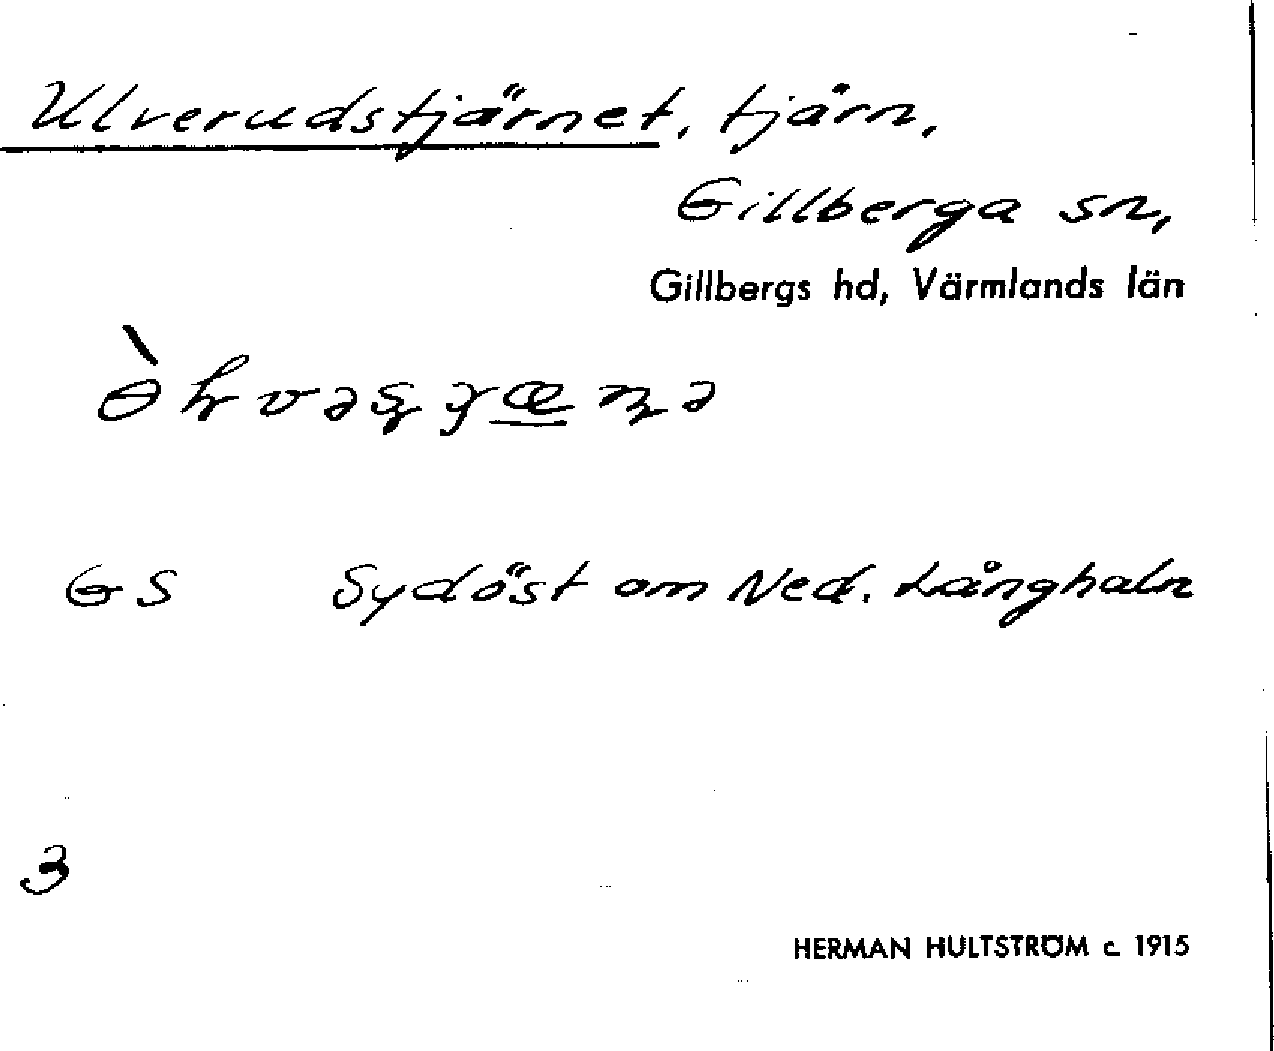 Ulverudstjärnet, tjärn,
Gillberga sn,
Gillbergs hd, Värmlands län
GS Sydöst om Ned. Långhaln
3
HERMAN HULTSTRÖM c. 1915